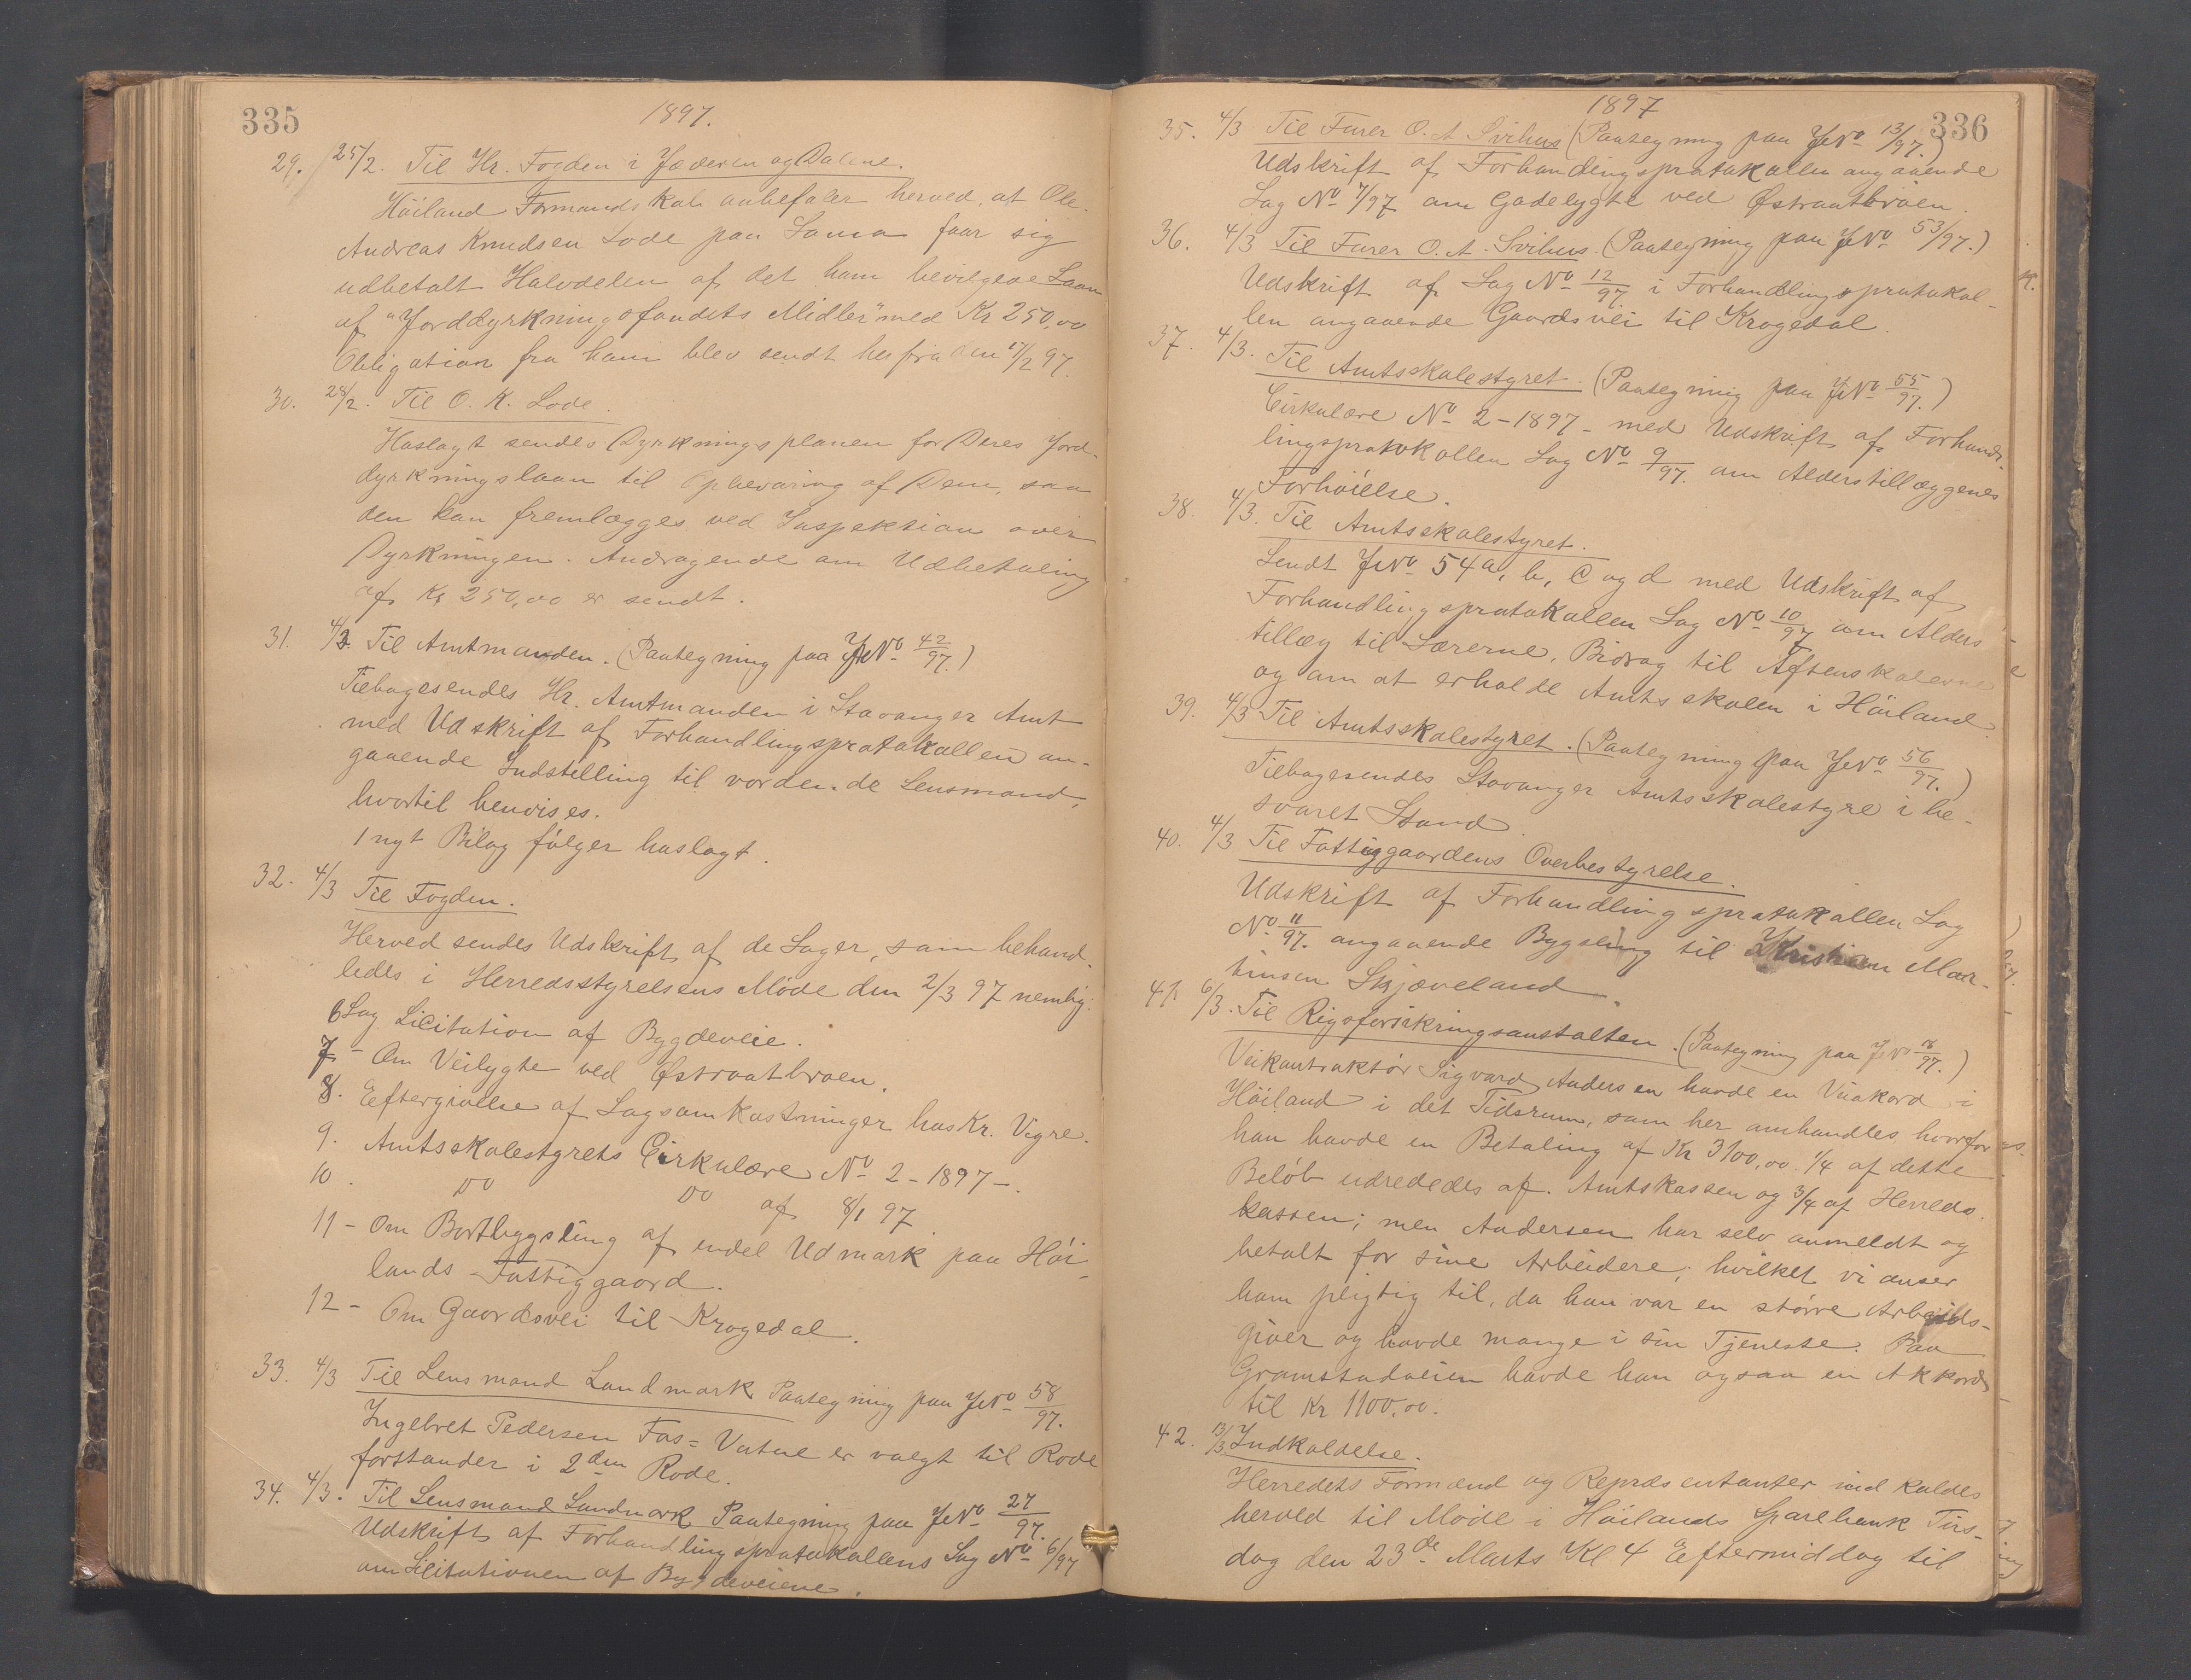 335
1897.
29. 25/2. Til Hr. Fogden i Jæderen og Dalene.
Höiland Formandskab anbefaler herved, at Ole
Andreas Knudsen Lode paa Lama faar sig
udbetalt Halvdelen af det ham bevilgede Laan
af "Jorddyrkningsfondets Midler" med Kr 250,00
Obligation fra ham blev sendt herfra den 17/2 97.
30. 28/2. Til O. K. Lode.
Hoslagt sendes Dyrkningsplanen for Deres Jord-
dyrkningslaan til Opbevaring af Dem, saa
den kan fremlægges ved Inspektion over
Dyrkningen. Andragende om Udbetaling
af Kr 250,00 er sendt.
31. 4/3. Til Amtmanden. (Paategning paa J№ 42/97.)
Tilbagesendes Hr. Amtmanden i Stavanger Amt
med Udskrift af Forhandlingsprotokollen an-
gaaende Indstilling til vordende Lensmand,
hvortil henvises.
1 nyt Bilag fölger hoslagt.
32. 4/3 Til Fogden.
Herved sendes Udskrift af de Sager, som behand-
ledes i Herredsstyrelsens Möde den 2/3 97 nemlig:
6 Sag Licitation af Bygdeveie.
7 - Om Veilygte ved Østraatbroen.
8. Eftergivelse af Sagsomkostninger hos Kr. Vigre.
9. Amtsskolestyrets Cirkulære № 2 - 1897 -.
10. Do Do af 8/1 97
11 - Om Bortbygsling af endel Udmark paa Höi-
lands Fattiggaard.
12 - Om Gaardsvei til Krogedal.
33. 4/3 Til Lensmand Landmark Paategning paa J№ 58/97.
Ingebret Pedersen Fos=Vatne er valgt til Rode
forstander i 2den Rode.
34. 4/3. Til Lensmand Landmark Paategning paa J№ 27/97.
Udskrift af Forhandlingsprotokollens Sag № 6/97
om Licitationen af Bygdeveiene.
1897
336
35. 4/3 Til Furer O. A. Svihus (Paategning paa J№ 13/97.)
Udskrift af Forhandlingsprotokollen angaaende
Sag № 7/97 om Gadelygte ved Østraatbroen.
36. 4/3 Til Furer O. A. Svihus. (Paategning paa J№ 53/97.)
Udskrift af Sag № 12/97. i Forhandlingsprotokol-
len angaaende Gaardsvei til Krogedal.
37. 4/3. Til Amtsskolestyret. (Paategning paa J№ 55/97.)
Cirkulære № 2 - 1897 - med Udskrift af Forhand-
lingsprotokollen Sag № 9/97. om Alderstillæggenes
Forhöielse.
38. 4/3. Til Amtsskolestyret.
Sendt J№ 54 a, b, c og d med Udskrift af
Forhandlingsprotokollen Sag № 10/97 om Alders
tillæg til Lærerne, Bidrag til Aftenskolerne
og om at erholde Amtsskolen i Höiland.
39. 4/3 Til Amtsskolestyret. (Paategning paa J№ 56/97.)
Tilbagesendes Stavanger Amtsskolestyre i be-
svaret Stand.
40. 4/3 Til Fattiggaardens Overbestyrelse.
Udskrift af Forhandlingsprotokollen Sag
№ 11/97. angaaende Bygsling til Kristian Mar-
tinsen Skjæveland.
41. 6/3. Til Rigsforsikringsanstalten. (Paategning paa J№ /97.)
Veikontraktör Sigvard Andersen havde en Veiakord i
Höiland i det Tidsrum, som her omhandles, hvorfor
han havde en Betaling af Kr 3100,00. 1/4 af dette
Belöb udrededes af Amtskassen og 3/4 af Herreds.
kassen; men Andersen har selv anmeldt og
betalt for sine Arbeidere, hvilket vi anser
ham pligtig til, da han var en större Arbeids-
giver og havde mange i sin Tjeneste. Paa
Gramstadveien havde han ogsaa en Akkord
til Kr 1100,00.
42. 13/3 Indkaldelse.
Herredets Formænd og Repræsentanter indkaldes
herved til Möde i Höilands Sparebank Tirs-
dag den 23de Marts Kl 4 Eftermiddag til